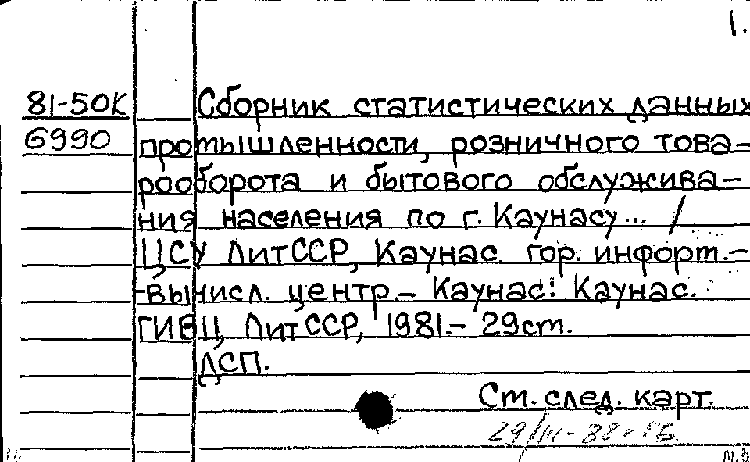 1.
81-50К Сборник статистических данных
6990 промышленности, розничного това-
рооборота и бытового обслужива-
ния населения по г. Каунасу... /
ЦСУ ЛитССР, Каунас. гор. информ.-
-вычисл. центр. - Каунас: Каунас.
ГИВЦ, ЛитССР, 1981.- 29ст.
ДСП.
См. след. карт.